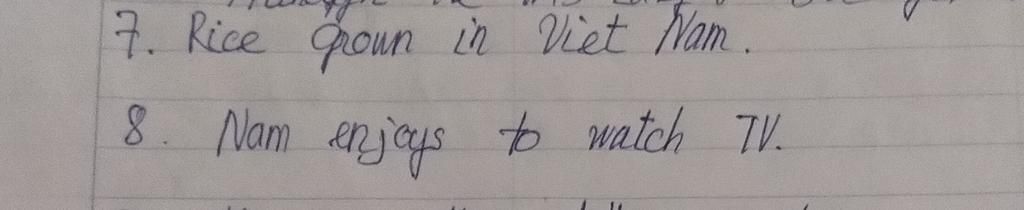 7. Rice grown in Viet Nam.
8. Nam enjoys to watch TV.